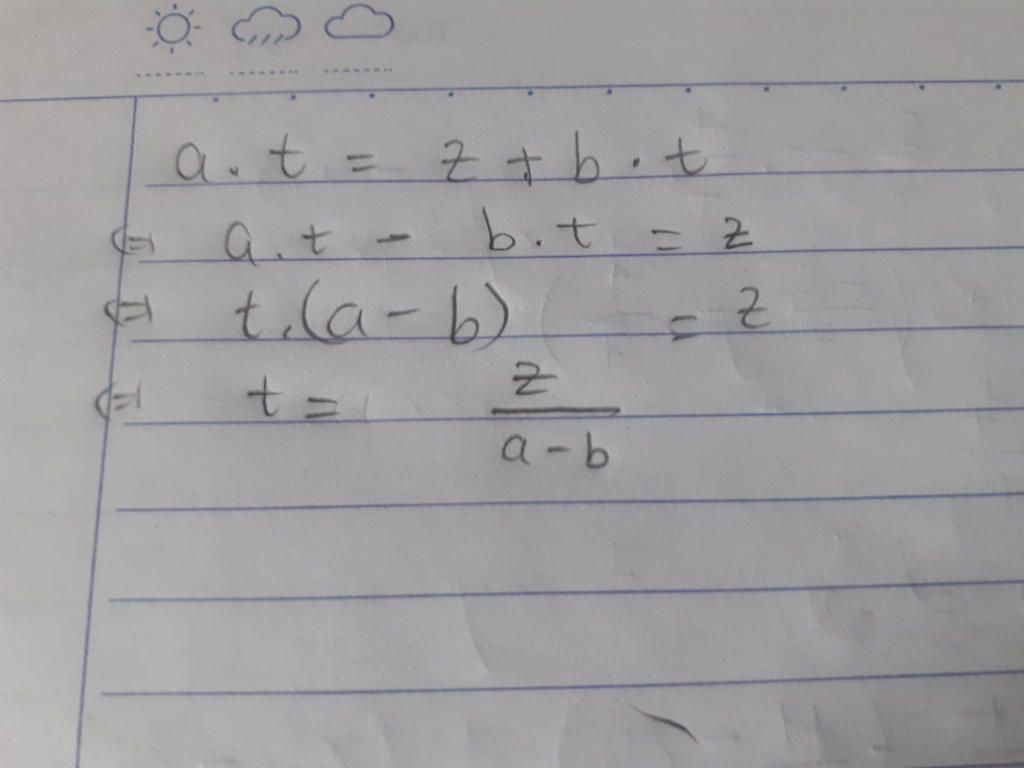 a . t = z + b . t
⇔ a . t - b . t = z
⇔ t . (a - b) = z
⇔ t = z / (a - b)